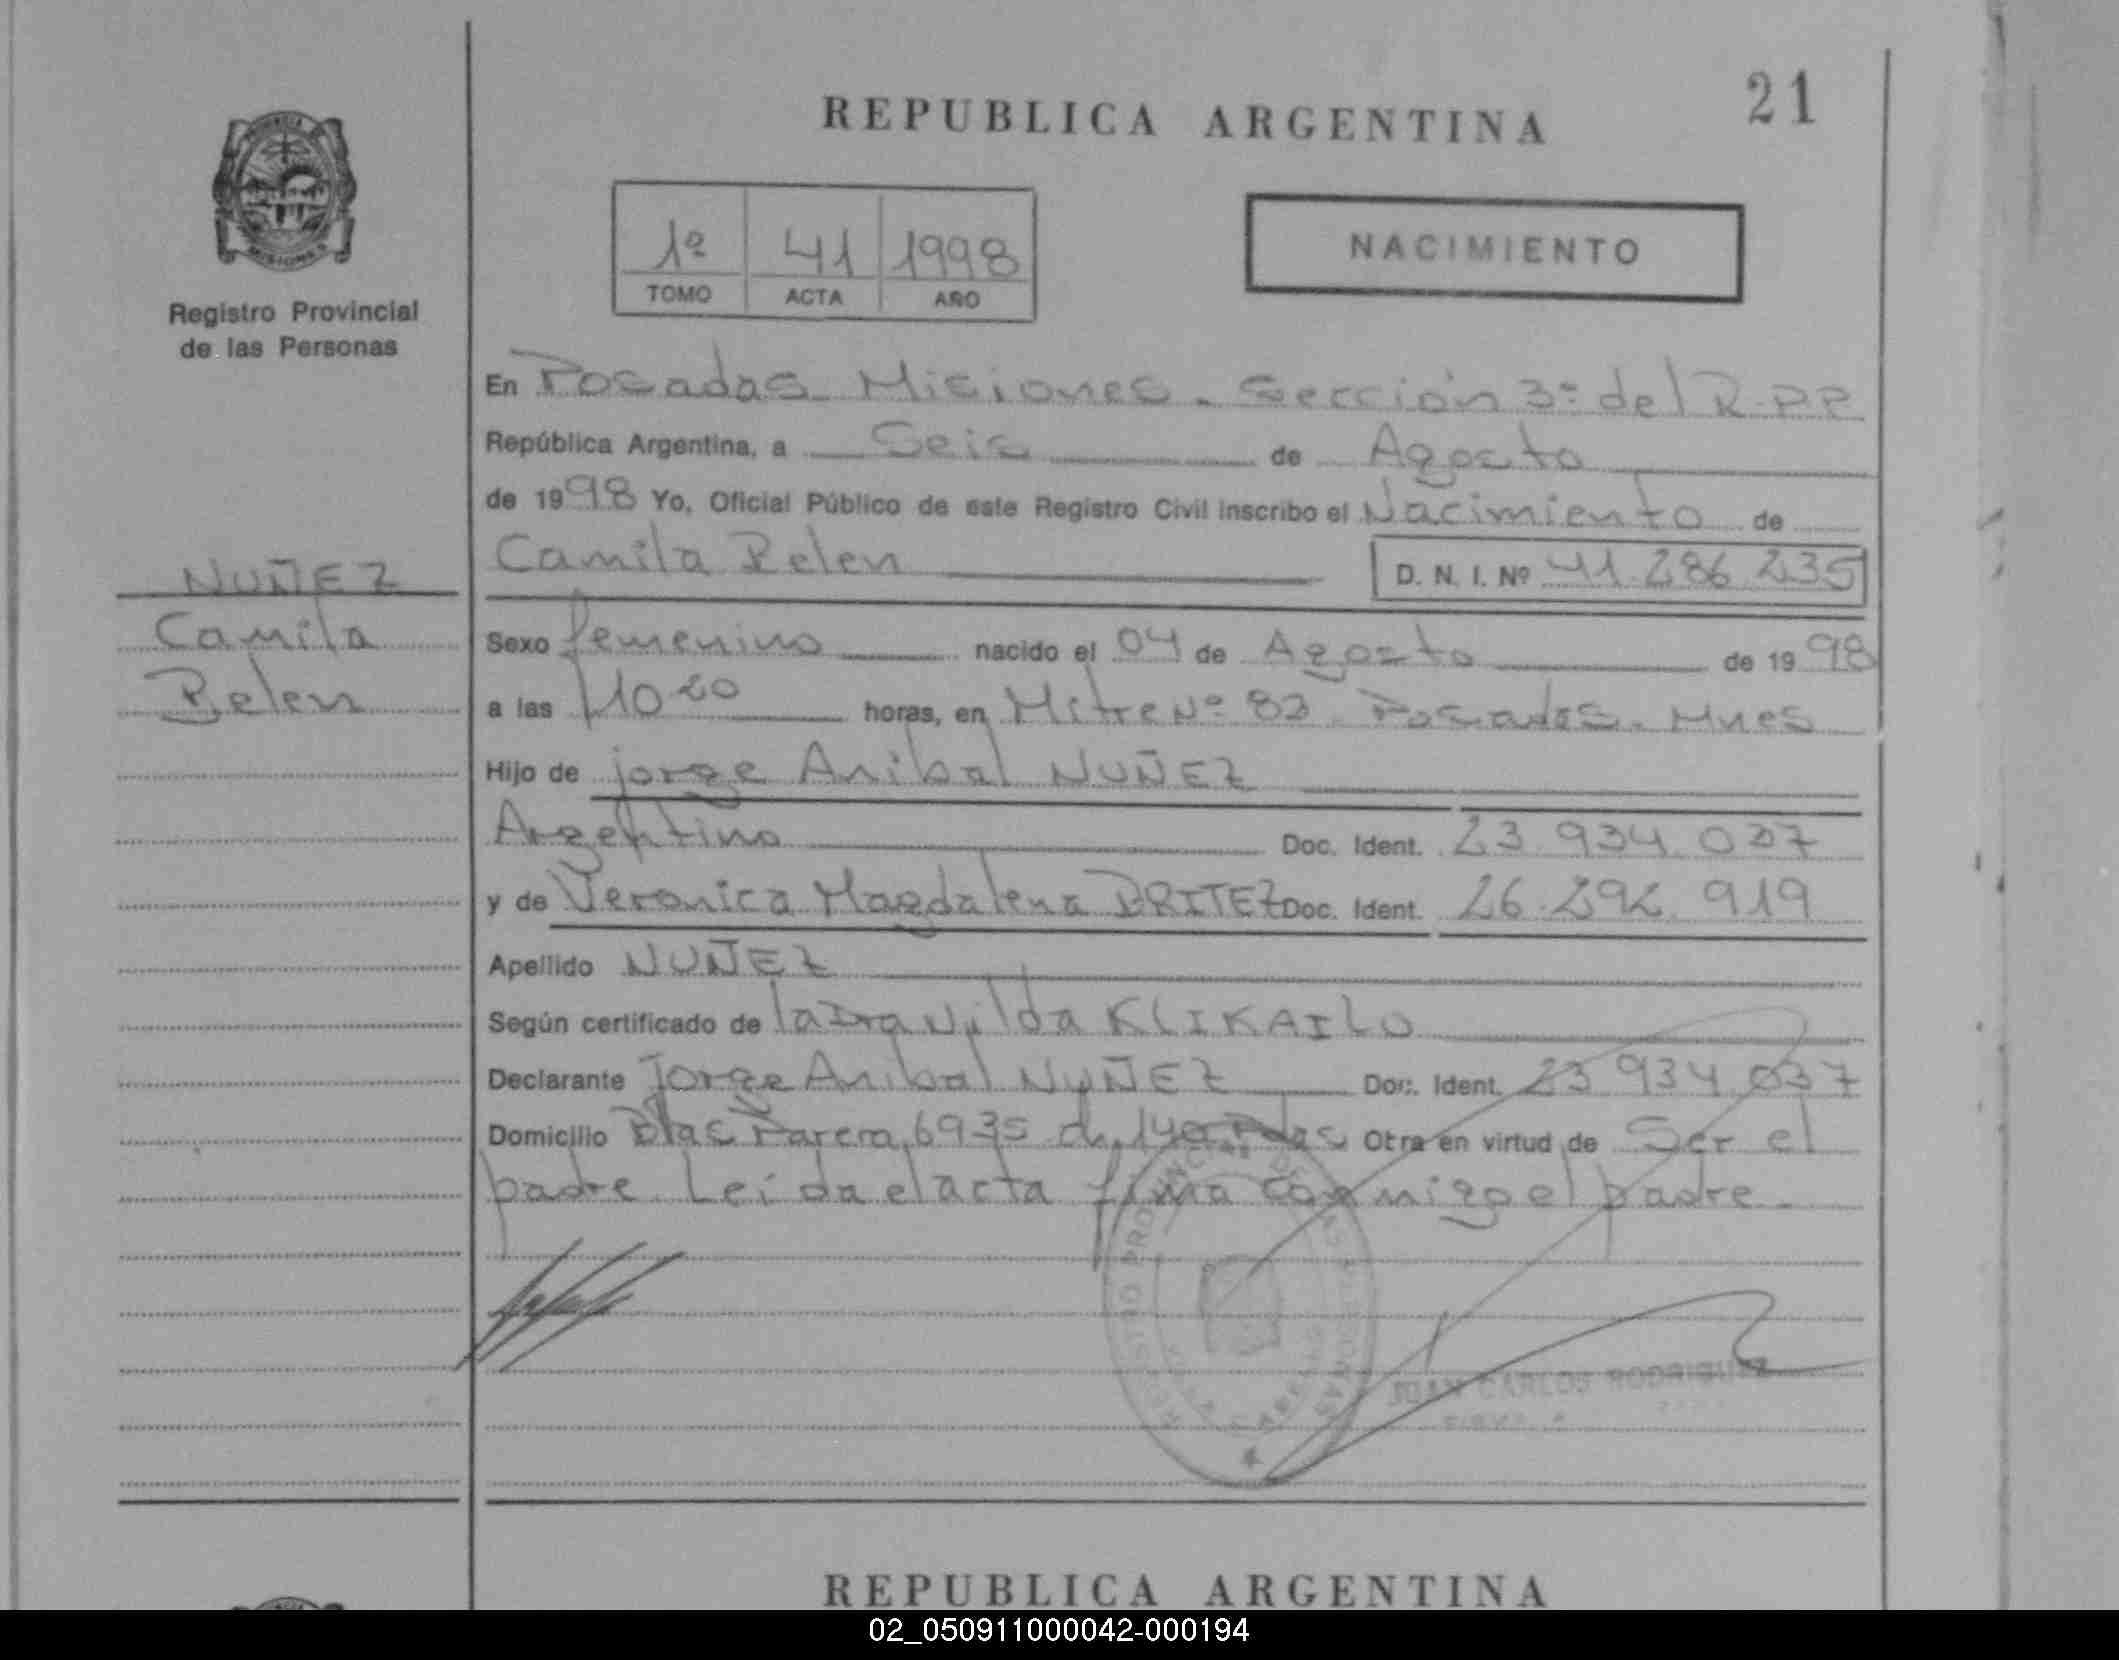 21
REPUBLICA ARGENTINA
1º 41 1998
TOMO ACTA AÑO
NACIMIENTO
MISIONES
Registro Provincial
de las Personas
NUÑEZ
Camila
Belen
En Posadas Misiones. Sección 3º del R.P.P
República Argentina, a Seis de Agosto
de 1998 Yo, Oficial Público de este Registro Civil inscribo el Nacimiento de
Camila Belen D. N. I. Nº 41.286.235
Sexo femenino nacido el 04 de Agosto de 1998
a las 10 20 horas, en Mitre Nº 83. Posadas. Mnes
Hijo de Jorge Anibal NUÑEZ
Argentino Doc. Ident. 23.934.037
y de Veronica Magdalena BRITEZ Doc. Ident. 26.292.919
Apellido NUÑEZ
Según certificado de la Dra Nilda KLIKAILO
Declarante Jorge Anibal NUÑEZ Doc. Ident. 23 934 037
Domicilio Blas Parera 6935 ch. 140 Pdas Otra en virtud de Ser el
padre. Leída el acta firma conmigo el padre.
JUAN CARLOS RODRIGUEZ
REPUBLICA ARGENTINA
02_050911000042-000194